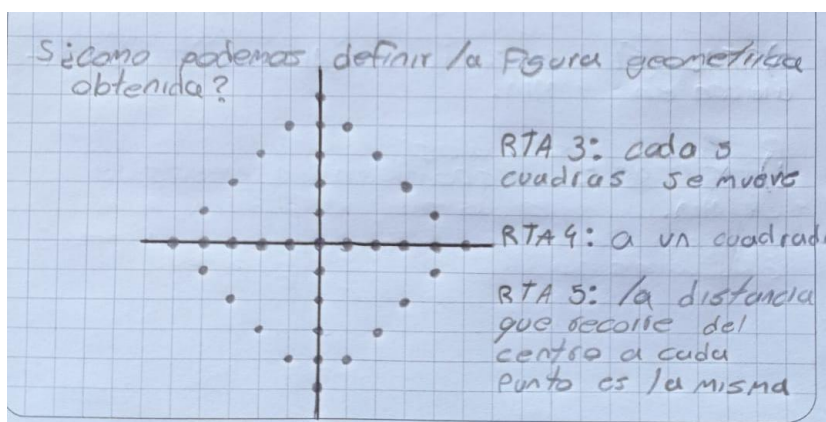 5¿como podemos definir la figura geometrica
obtenida?
RTA 3: cada 5
cuadras se mueve
RTA 4: a un cuadrad
RTA 5: la distancia
que recorre del
centro a cada
punto es la misma